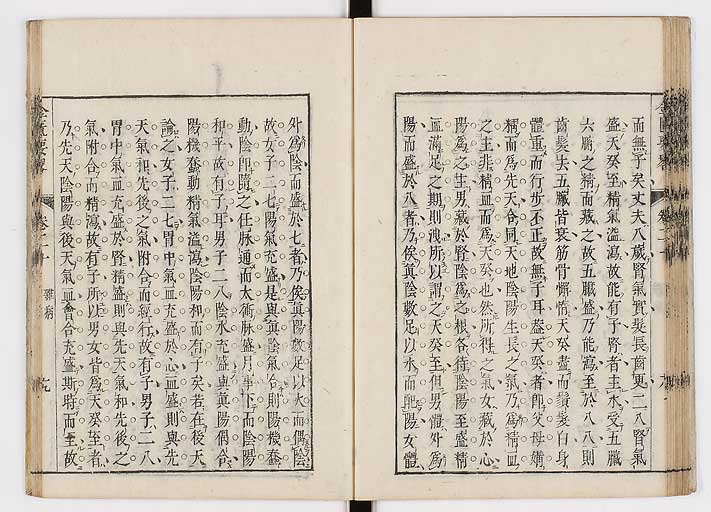 而無子矣丈夫八歲腎氣實髮長齒更二八腎氣
盛天癸至精氣溢瀉故能有子腎者主水受五臟
六腑之精而藏之故五臟盛乃能瀉至於八八則
齒髮去五臟皆衰筋骨懈惰天癸盡而鬢髮白身
體重而行步不正故無子耳蓋天癸者即父母媾
精而為先天合同天地陰陽生長之氣乃為精血
之主非精血而為天癸也然所得之氣女藏於心
陽為之生男藏於腎陰為之根各待陰陽至盛精
血滿足之期則洩所以謂之天癸至但男體外為
陽而盛於八者乃俟真陰數足以水而配陽女體
外為陰而盛於七者乃俟真陽數足以火而偶陰
故女子二七陽氣充盛是與真陰氣合則陽機蠢
動陰即隨之任脉通而太衝脉盛月事下而陰陽
和平故有子耳男子二八陰水充盛與真陽偶合
陽機蠢動精氣溢瀉陰陽和而有子矣若在後天
論之女子二七胃中氣血充盛於心血盛則與先
天氣和先後之氣附合而經行故有子男子二八
胃中氣血充盛於腎精盛則與先天氣和先後之
氣附合而精瀉故有子所以男女皆為天癸至者
乃先天陰陽與後天氣血會合充盛斯時而至故
卷二十
雜病